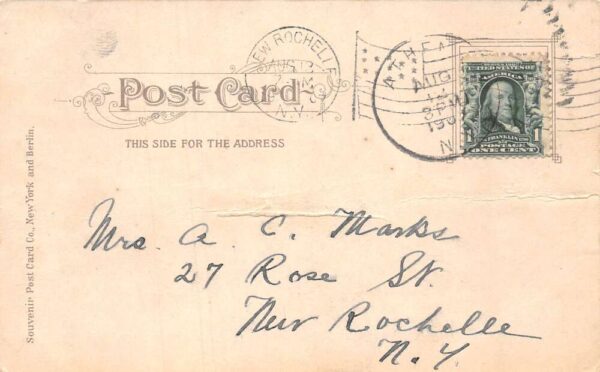 NEW ROCHELLE
AUG
N.Y.
ATHENS
AUG
3 PM
190
N.Y.
SERIES 1902
UNITED STATES OF AMERICA
FRANKLIN
1
POSTAGE
ONE CENT
Post Card
THIS SIDE FOR THE ADDRESS
Souvenir Post Card Co., New York and Berlin.
Mrs. A. C. Marks
27 Rose St.
New Rochelle
N. Y.